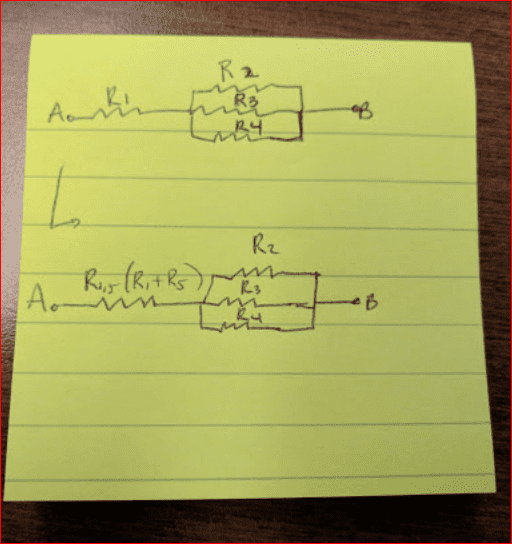 R2
R1
R3
A
B
R4
R2
R1,5 (R1+R5)
R3
A
B
R4